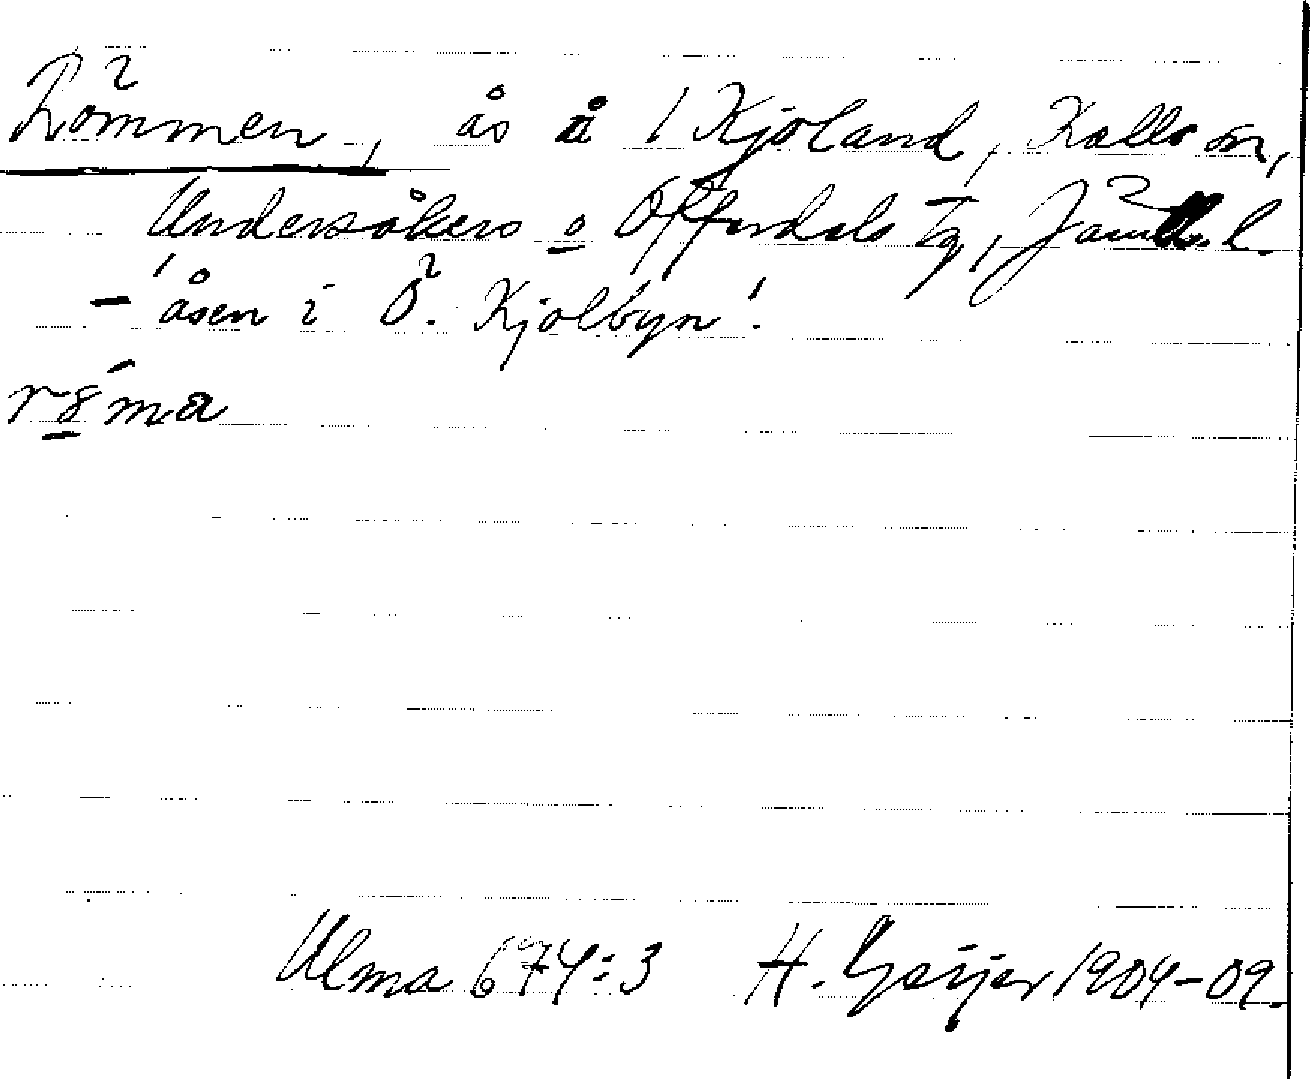 Römmen, ås i Kjoland, Kalls sn,
Undersåkers o Offerdals tg, Jämtl. l.
- åsen i Ö. Kjolbyn!
röma
Ulma 674:3 H. Geijer 1904-09.